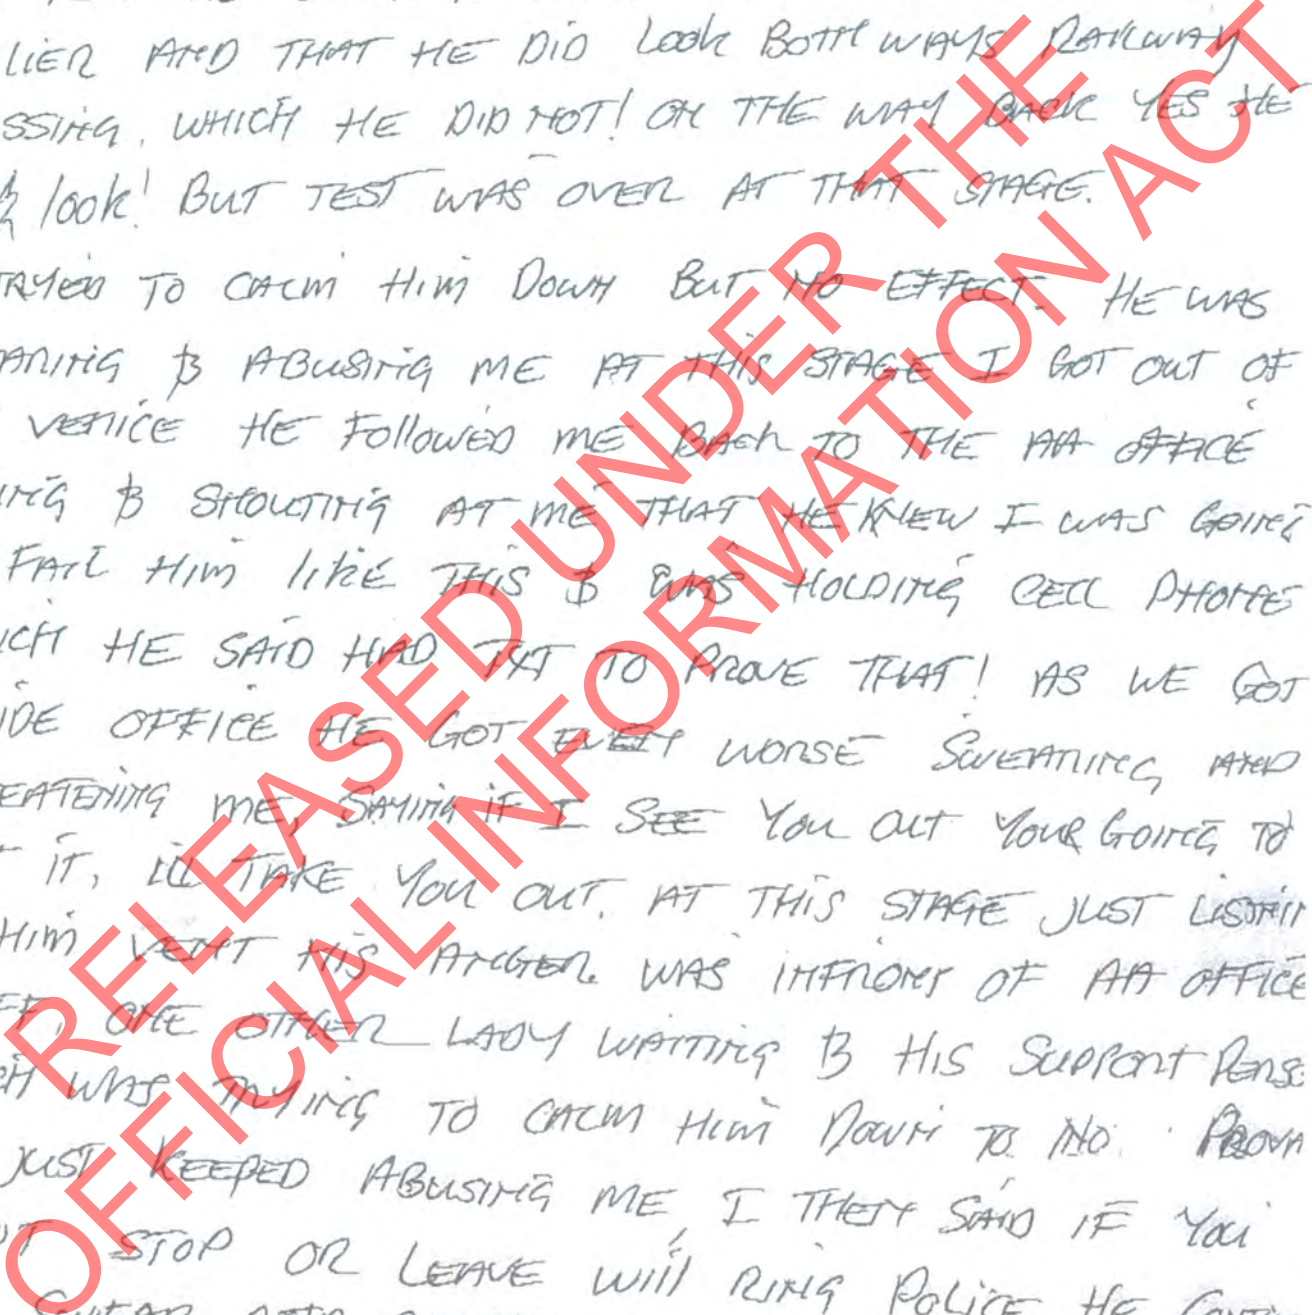 LIER AND THAT HE DID Look BOTH WAYS RAILWAY
SSING, WHICH HE DID NOT! ON THE WAY BACK YES HE
look! BUT TEST WAS OVER AT THAT STAGE.
TRYED TO CALM HIM DOWN BUT NO EFFECT. HE WAS
ARING & ABUSING ME AT THIS STAGE I GOT OUT OF
VEHICE HE FOLLOWED ME BACK TO THE AA OFFICE
ING & SHOUTING AT ME THAT HE KNEW I WAS GOING
FAIL HIM LIKE THIS & WAS HOLDING CELL PHONE
ICH HE SAID HAD TXT TO PROVE THAT! AS WE GOT
IDE OFFICE HE GOT EVEN WORSE SWEARING AND
EATENING ME, SAYING IF I SEE YOU OUT YOUR GOING TO
T IT, ILL TAKE YOU OUT. AT THIS STAGE JUST
HIM VENT HIS ANGER. WAS INFRONT OF AA OFFICE
FF, ONE OTHER LADY WAITING & HIS SUPPORT PERS
CH WAS TRYING TO CALM HIM DOWN TO NO
JUST KEEPED ABUSING ME, I THEN SAID IF YOU
NT STOP OR LEAVE WILL RING POLICE HE
RELEASED UNDER THE
OFFICIAL INFORMATION ACT